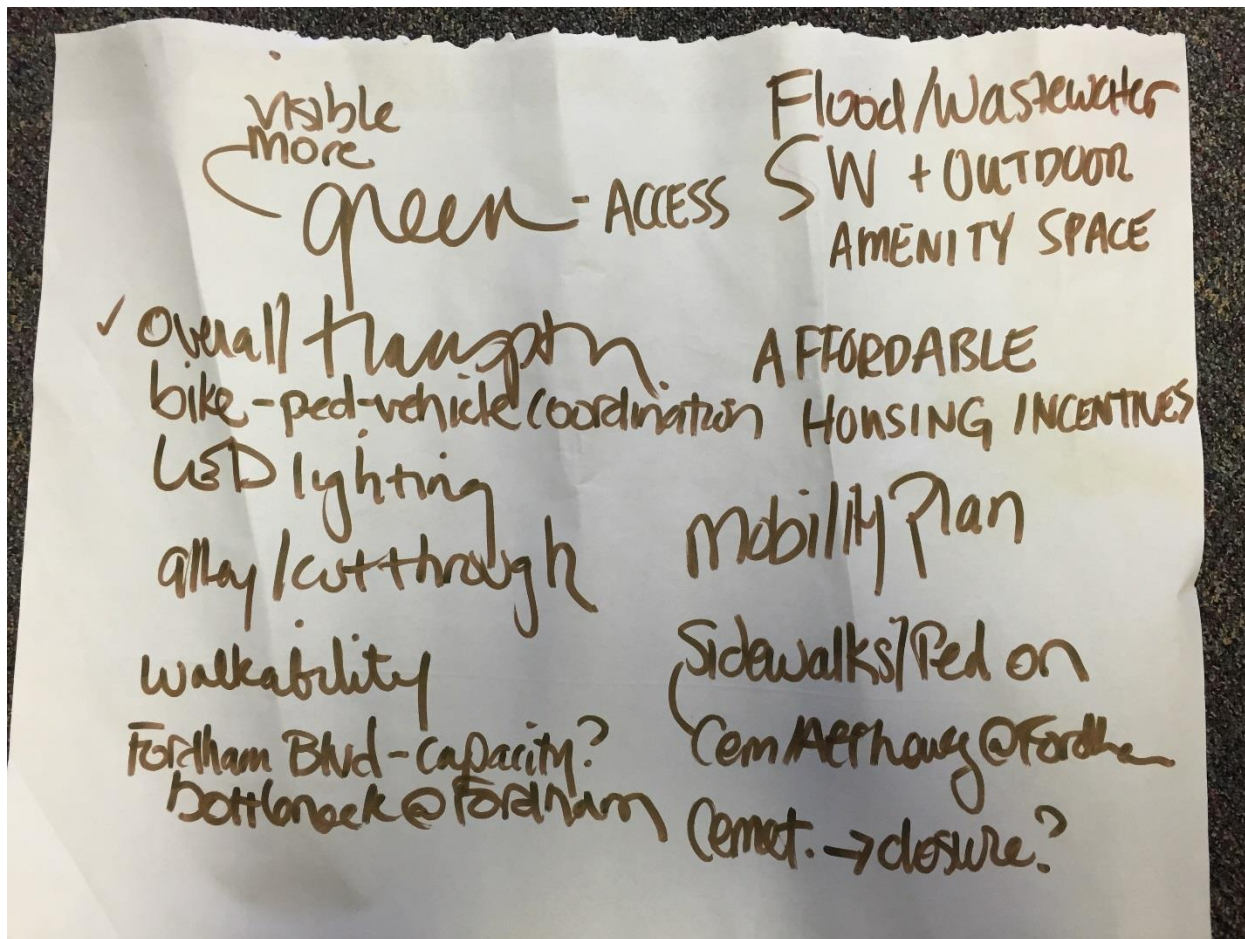 visible
more
green - ACCESS
✓ Overall transptn
bike-ped-vehicle coordination
LED lighting
alley/cut through
walkability
Fordham Blvd - capacity?
bottleneck @ Fordham
Flood/Wastewater
SW + OUTDOOR
AMENITY SPACE
AFFORDABLE
HOUSING INCENTIVES
Mobility Plan
Sidewalks/Ped on
Cem @ Fordham
Cemet. → closure?